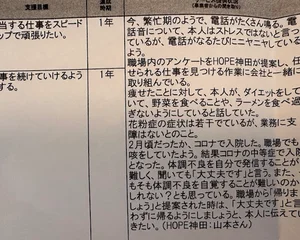 支援目標
達成時期
当する仕事をスピード
ップで頑張りたい。
1年
今、繁忙期のようで、電話がたくさん鳴る。電
話音について、本人はストレスではないと言っ
ているが、電話がなるたびにニヤニヤしている
よう。
事を続けていけるよう
する。
1年
職場内のアンケートをHOPE神田が提案し、任
せられる仕事を見つける作業に会社と一緒に
取り組んでいる。
痩せたことに対して、本人が、ダイエットをして
いて、野菜を食べることや、ラーメンを食べ過
ぎないようにしていると話していた。
花粉症の症状は若干でているが、業務に支
障はないとのこと。
2月頃だったか、コロナで入院した。職場でも
咳をしていたよう。結果コロナの中等症で入院
となった。体調不良を自分で発信することが
難しく、聞いても「大丈夫です」と言う。また、そ
もそも体調不良を自覚することが難しいのかも
しれない？とも思っている。職場から「帰りま
しょう」と提案された時は、「大丈夫です」と言
わずに帰るようにしましょうと、本人に伝えて
きたい。（HOPE神田：山本さん）